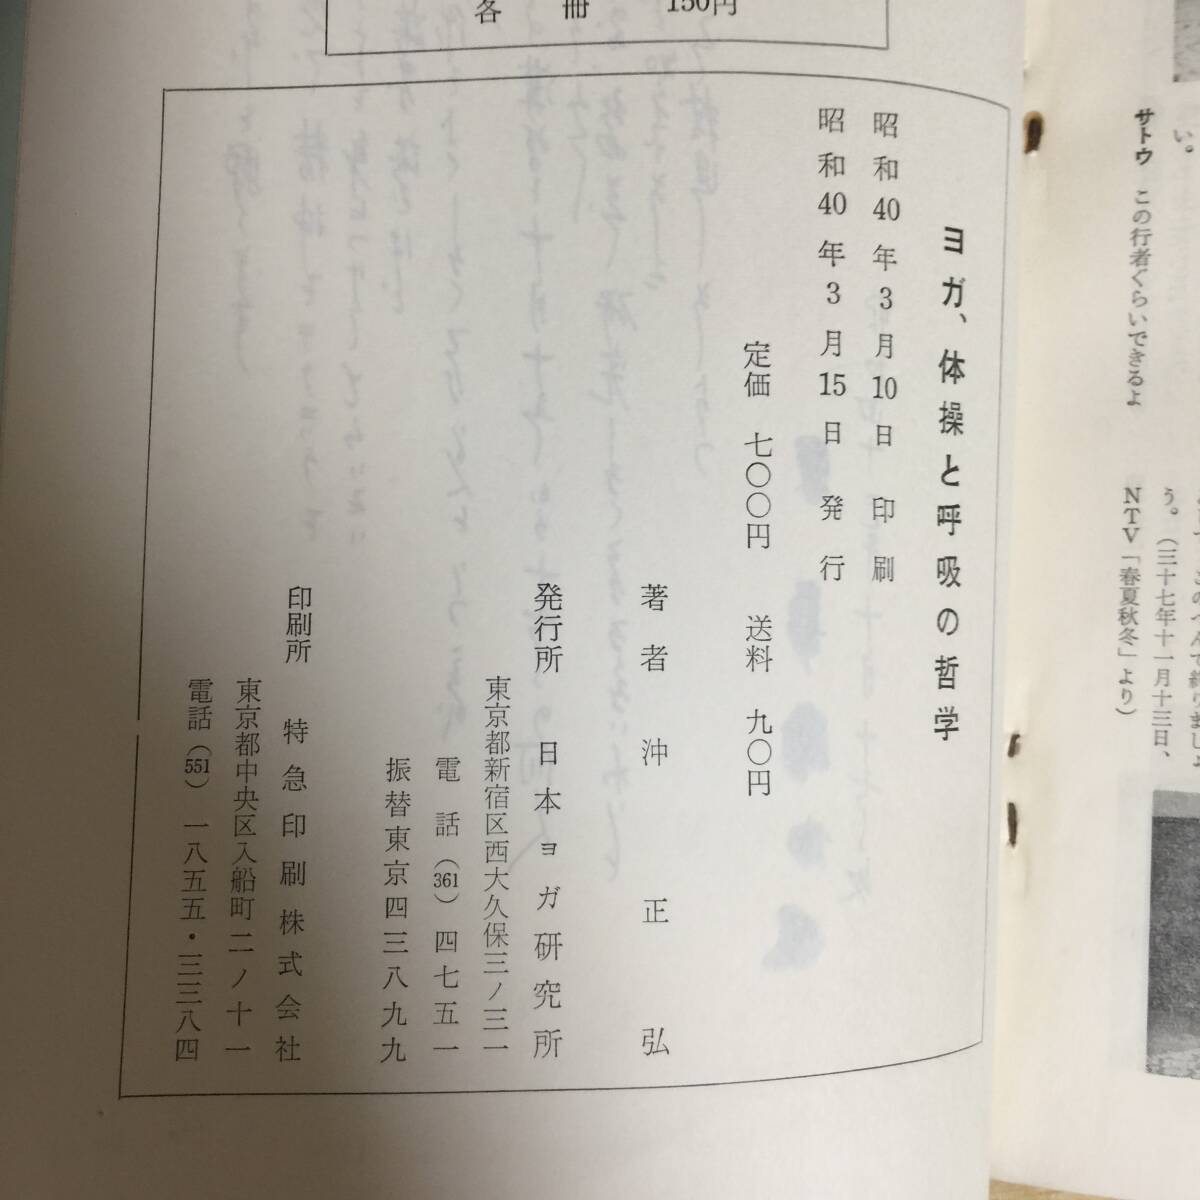 い。
サトウ この行者ぐらいできるよ
う。(三十七年十一月十三日、
NTV「春夏秋冬」より)
各冊 150円
ヨガ、体操と呼吸の哲学
昭和40年3月10日 印刷
昭和40年3月15日 発行
定価 七〇〇円 送料 九〇円
著者 沖正弘
発行所 日本ヨガ研究所
東京都新宿区西大久保三ノ三一
電話(361)四七五一
振替東京四三八九九
印刷所 特急印刷株式会社
東京都中央区入船町二ノ十一
電話(551)一八五五・三三八四